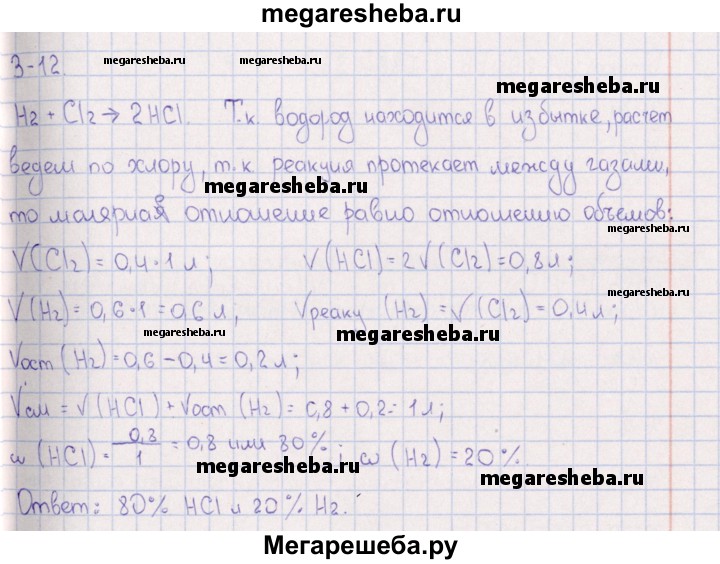 megaresheba.ru
3-12.
megaresheba.ru megaresheba.ru
megaresheba.ru
H2 + Cl2 → 2HCl. Т.к. водород находится в избытке, расчет
ведем по хлору, т.к. реакция протекает между газами,
megaresheba.ru
то молярная отношение равно отношению объемов:
megaresheba.ru
V(Cl2) = 0,4·1 л; V(HCl) = 2V(Cl2) = 0,8 л;
megaresheba.ru
V(H2) = 0,6·1 = 0,6 л; Vреакц (H2) = V(Cl2) = 0,4 л;
megaresheba.ru megaresheba.ru
Vост (H2) = 0,6 - 0,4 = 0,2 л;
Vсм = V(HCl) + Vост (H2) = 0,8 + 0,2 = 1 л;
ω (HCl) = 0,8/1 = 0,8 или 80%; ω (H2) = 20%.
megaresheba.ru megaresheba.ru
Ответ: 80% HCl и 20% H2.
Мегарешеба.ру